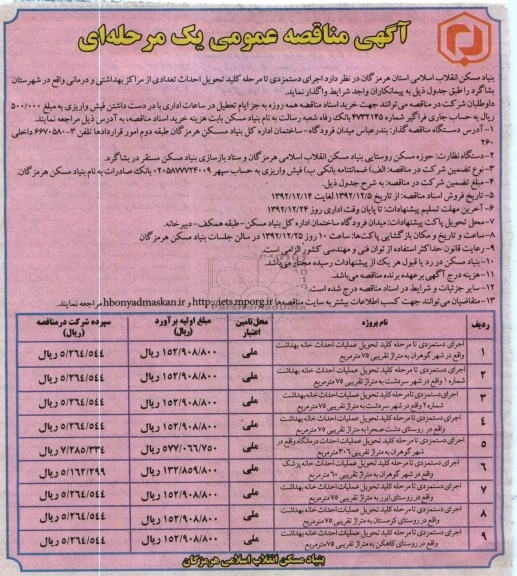 آگهی مناقصه عمومی یک مرحله‌ای
بنیاد مسکن انقلاب اسلامی استان هرمزگان در نظر دارد اجرای دستمزدی تا مرحله کلید تحویل احداث تعدادی از مراکز بهداشتی و درمانی واقع در شهرستان
بشاگرد را طبق جدول ذیل به پیمانکاران واجد شرایط واگذار نماید.
داوطلبان شرکت در مناقصه می‌توانند جهت خرید اسناد مناقصه همه روزه به جز ایام تعطیل در ساعات اداری با در دست داشتن فیش واریزی به مبلغ ۵۰۰/۰۰۰
ریال به حساب جاری فراگیر شماره ۴۷۳۲۱۴۵ بانک رفاه شعبه رسالت به نام بنیاد مسکن بابت هزینه خرید اسناد مناقصه به آدرس ذیل مراجعه نمایند.
۱- آدرس دستگاه مناقصه گذار: بندرعباس میدان فرودگاه- ساختمان اداره کل بنیاد مسکن هرمزگان طبقه دوم امور قراردادها تلفن ۳-۶۶۷۰۵۸۰ داخلی
۲۶۰
۲- دستگاه نظارت: حوزه مسکن روستایی بنیاد مسکن انقلاب اسلامی هرمزگان و ستاد بازسازی بنیاد مسکن مستقر در بشاگرد.
۳- نوع تضمین شرکت در مناقصه: الف) ضمانتنامه بانکی ب) فیش واریزی به حساب سپهر ۰۲۰۵۸۷۷۷۲۴۰۰۹ بانک صادرات به نام بنیاد مسکن هرمزگان.
۴- مبلغ تضمین شرکت در مناقصه: به شرح جدول ذیل.
۵- تاریخ فروش اسناد مناقصه: از تاریخ ۱۳۹۲/۱۲/۵ لغایت ۱۳۹۲/۱۲/۱۴
۶- آخرین مهلت تسلیم پیشنهادات: تا پایان وقت اداری روز ۱۳۹۲/۱۲/۲۴
۷- محل تحویل پاکت پیشنهادات: میدان فرودگاه ساختمان اداره کل بنیاد مسکن- طبقه همکف- دبیرخانه.
۸- ساعت و تاریخ و مکان بازگشایی پاکت‌ها: ساعت ۱۰ روز ۱۳۹۲/۱۲/۲۵ در سالن جلسات بنیاد مسکن هرمزگان
۹- رعایت قانون حداکثر استفاده از توان فنی و مهندسی کشور الزامی است.
۱۰- بنیاد مسکن در رد یا قبول هر یک از پیشنهادات رسیده مختار می‌باشد.
۱۱- هزینه درج آگهی بر عهده برنده مناقصه می‌باشد.
۱۲- سایر جزئیات و شرایط در اسناد مناقصه درج شده است.
۱۳- متقاضیان می‌توانند جهت کسب اطلاعات بیشتر به سایت مناقصه‌ها http://iets.mporg.ir و hbonyadmaskan.ir مراجعه نمایند.
ردیف نام پروژه محل تامین اعتبار مبلغ اولیه برآورد (ریال) سپرده شرکت در مناقصه (ریال)
۱ اجرای دستمزدی تا مرحله کلید تحویل عملیات احداث خانه بهداشت واقع در شهر گوهران به متراژ تقریبی ۷۵ مترمربع ملی ۱۵۲/۹۰۸/۸۰۰ ریال ۵/۲۶۴/۵۴۴ ریال
۲ اجرای دستمزدی تا مرحله کلید تحویل عملیات احداث خانه بهداشت شماره ۱ واقع در شهر سردشت به متراژ تقریبی ۷۵ مترمربع ملی ۱۵۲/۹۰۸/۸۰۰ ریال ۵/۲۶۴/۵۴۴ ریال
۳ اجرای دستمزدی تا مرحله کلید تحویل عملیات احداث خانه بهداشت شماره ۲ واقع در شهر سردشت به متراژ تقریبی ۷۵ مترمربع ملی ۱۵۲/۹۰۸/۸۰۰ ریال ۵/۲۶۴/۵۴۴ ریال
۴ اجرای دستمزدی تا مرحله کلید تحویل عملیات احداث خانه بهداشت واقع در روستای دشت صحرا به متراژ تقریبی ۷۵ مترمربع ملی ۱۵۲/۹۰۸/۸۰۰ ریال ۵/۲۶۴/۵۴۴ ریال
۵ اجرای دستمزدی تا مرحله کلید تحویل عملیات احداث درمانگاه واقع در شهر گوهران به متراژ تقریبی ۳۰۶ مترمربع ملی ۵۷۷/۰۶۶/۷۵۰ ریال ۷/۲۸۵/۳۳۴ ریال
۶ اجرای دستمزدی تا مرحله کلید تحویل عملیات احداث خانه پزشک واقع در شهر گوهران به متراژ تقریبی ۶۰ مترمربع ملی ۱۳۲/۸۵۹/۸۰۰ ریال ۵/۱۶۲/۲۹۹ ریال
۷ اجرای دستمزدی تا مرحله کلید تحویل عملیات احداث خانه بهداشت واقع در روستای ایرر به متراژ تقریبی ۷۵ مترمربع ملی ۱۵۲/۹۰۸/۸۰۰ ریال ۵/۲۶۴/۵۴۴ ریال
۸ اجرای دستمزدی تا مرحله کلید تحویل عملیات احداث خانه بهداشت واقع در روستای کرمستان به متراژ تقریبی ۷۵ مترمربع ملی ۱۵۲/۹۰۸/۸۰۰ ریال ۵/۲۶۴/۵۴۴ ریال
۹ اجرای دستمزدی تا مرحله کلید تحویل عملیات احداث خانه بهداشت واقع در روستای کاهکن به متراژ تقریبی ۷۵ مترمربع ملی ۱۵۲/۹۰۸/۸۰۰ ریال ۵/۲۶۴/۵۴۴ ریال
بنیاد مسکن انقلاب اسلامی هرمزگان